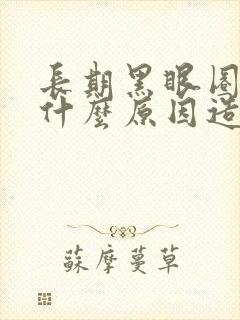 長期黑眼圈
什麼原因造
蘇摩蔓草